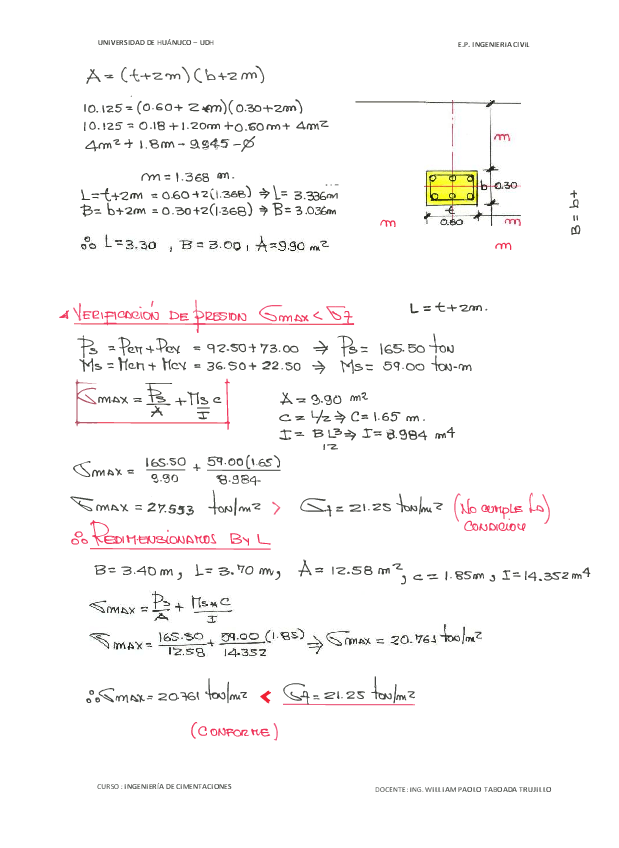 UNIVERSIDAD DE HUÁNUCO – UDH
E.P. INGENIERIA CIVIL
A = (t+2m)(b+2m)
10.125 = (0.60+2m)(0.30+2m)
10.125 = 0.18+1.20m+0.60m+4m²
4m²+1.8m-9.945-0
m = 1.368 m.
L = t+2m = 0.60+2(1.368) ⇒ L = 3.336m
B = b+2m = 0.30+2(1.368) ⇒ B = 3.036m
∴ L=3.30 , B = 3.00, A=9.90 m²
m
b 0.30
t
0.60
m
m
m
B = b+
L = t+2m.
VERIFICACIÓN DE PRESION σmax < σ7
Ps = Pcm+Pcv = 92.50+73.00 ⇒ Ps = 165.50 ton
Ms = Mcm+Mcv = 36.50+22.50 ⇒ Ms = 59.00 ton-m
σmax = Ps/A + Ms c/I
A = 9.90 m²
C = L/2 ⇒ C = 1.65 m.
I = BL³/12 ⇒ I = 8.984 m⁴
σmax = 165.50/9.90 + 59.00(1.65)/8.984
σmax = 27.553 ton/m² > σ7 = 21.25 ton/m² (No cumple la condición)
∴ REDIMENSIONAMOS B y L
B = 3.40 m, L = 3.70 m, A = 12.58 m², c = 1.85m, I = 14.352 m⁴
σmax = Ps/A + Ms*C/I
σmax = 165.50/12.58 + 59.00(1.85)/14.352 ⇒ σmax = 20.761 ton/m²
∴ σmax = 20.761 ton/m² < σ7 = 21.25 ton/m²
(CONFORME)
CURSO : INGENIERÍA DE CIMENTACIONES
DOCENTE: ING. WILLIAM PAOLO TABOADA TRUJILLO